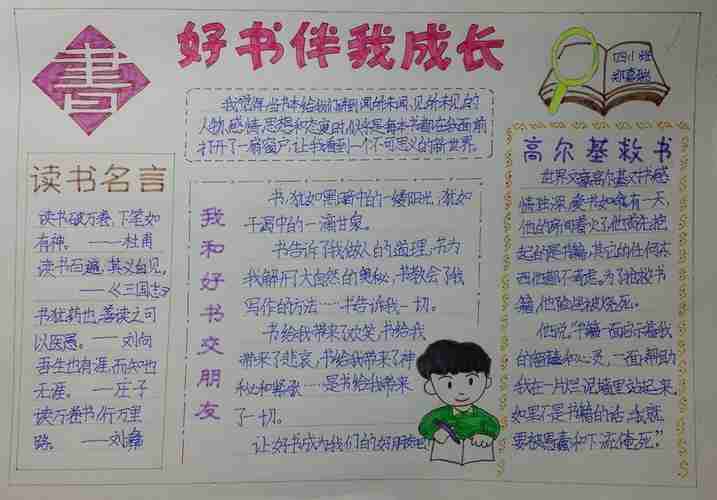 書
好书伴我成长
四(1)班
我觉得,当书本给我们讲到闻所未闻,见所未见的
人物、感情、思想和态度时,似乎是每本书都在我面前
打开了一扇窗户,让我看到一个不可思议的新世界。
读书名言
读书破万卷,下笔如
有神。 ——杜甫
读书百遍,其义自见。
——《三国志》
书犹药也,善读之可
以医愚。——刘向
吾生也有涯,而知也
无涯。 ——庄子
读万卷书,行万里
路。 ——刘彝
我和好书交朋友
书,犹如黑暗中的一缕阳光,犹如
干渴中的一滴甘泉。
书告诉了我做人的道理,书为
我解开了大自然的奥秘,书教会了我
写作的方法……书告诉我一切。
书给我带来了欢笑,书给我
带来了悲哀,书给我带来了神
秘和紧张……是书给我带来
了一切。
让好书成为我们的好朋友吧!
高尔基救书
世界文豪高尔基对书感
情独深,爱书如命。有一天,
他的房间着火了,他首先抱
起的是书籍,其它的任何东
西他都不考虑。为了抢救书
籍,他险些被烧死。
他说:“书籍一面启示着我
的智慧和心灵,一面帮助
我在一片烂泥塘里站起来,
如果不是书籍的话,我就
要被愚蠢和下流淹死。”